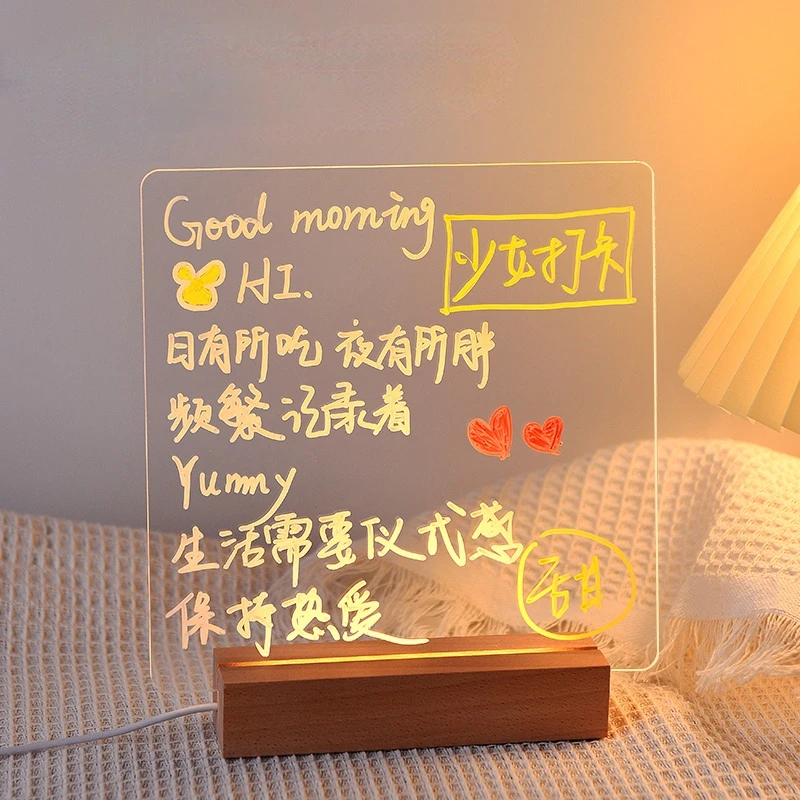 Good morning
少女打卡
HI.
日有所吃 夜有所胖
频繁记录着
Yummy
生活需要仪式感
保持热爱
甜